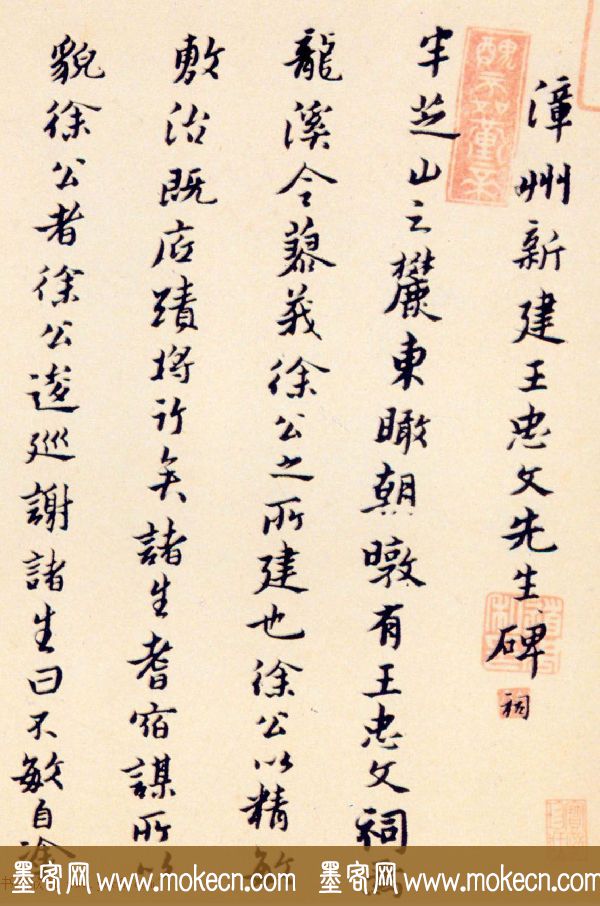 漳州新建王忠文先生碑
祠
半芝山之麓東瞰朝暾有王忠文祠焉
龍溪令蓼莪徐公之所建也徐公以精敏
敷治既底蹟將行矣諸生耆宿謀所以
貌徐公者徐公逡巡謝諸生曰不敏自塗
墨客网 www.mokecn.com 墨客网 www.mokecn.com